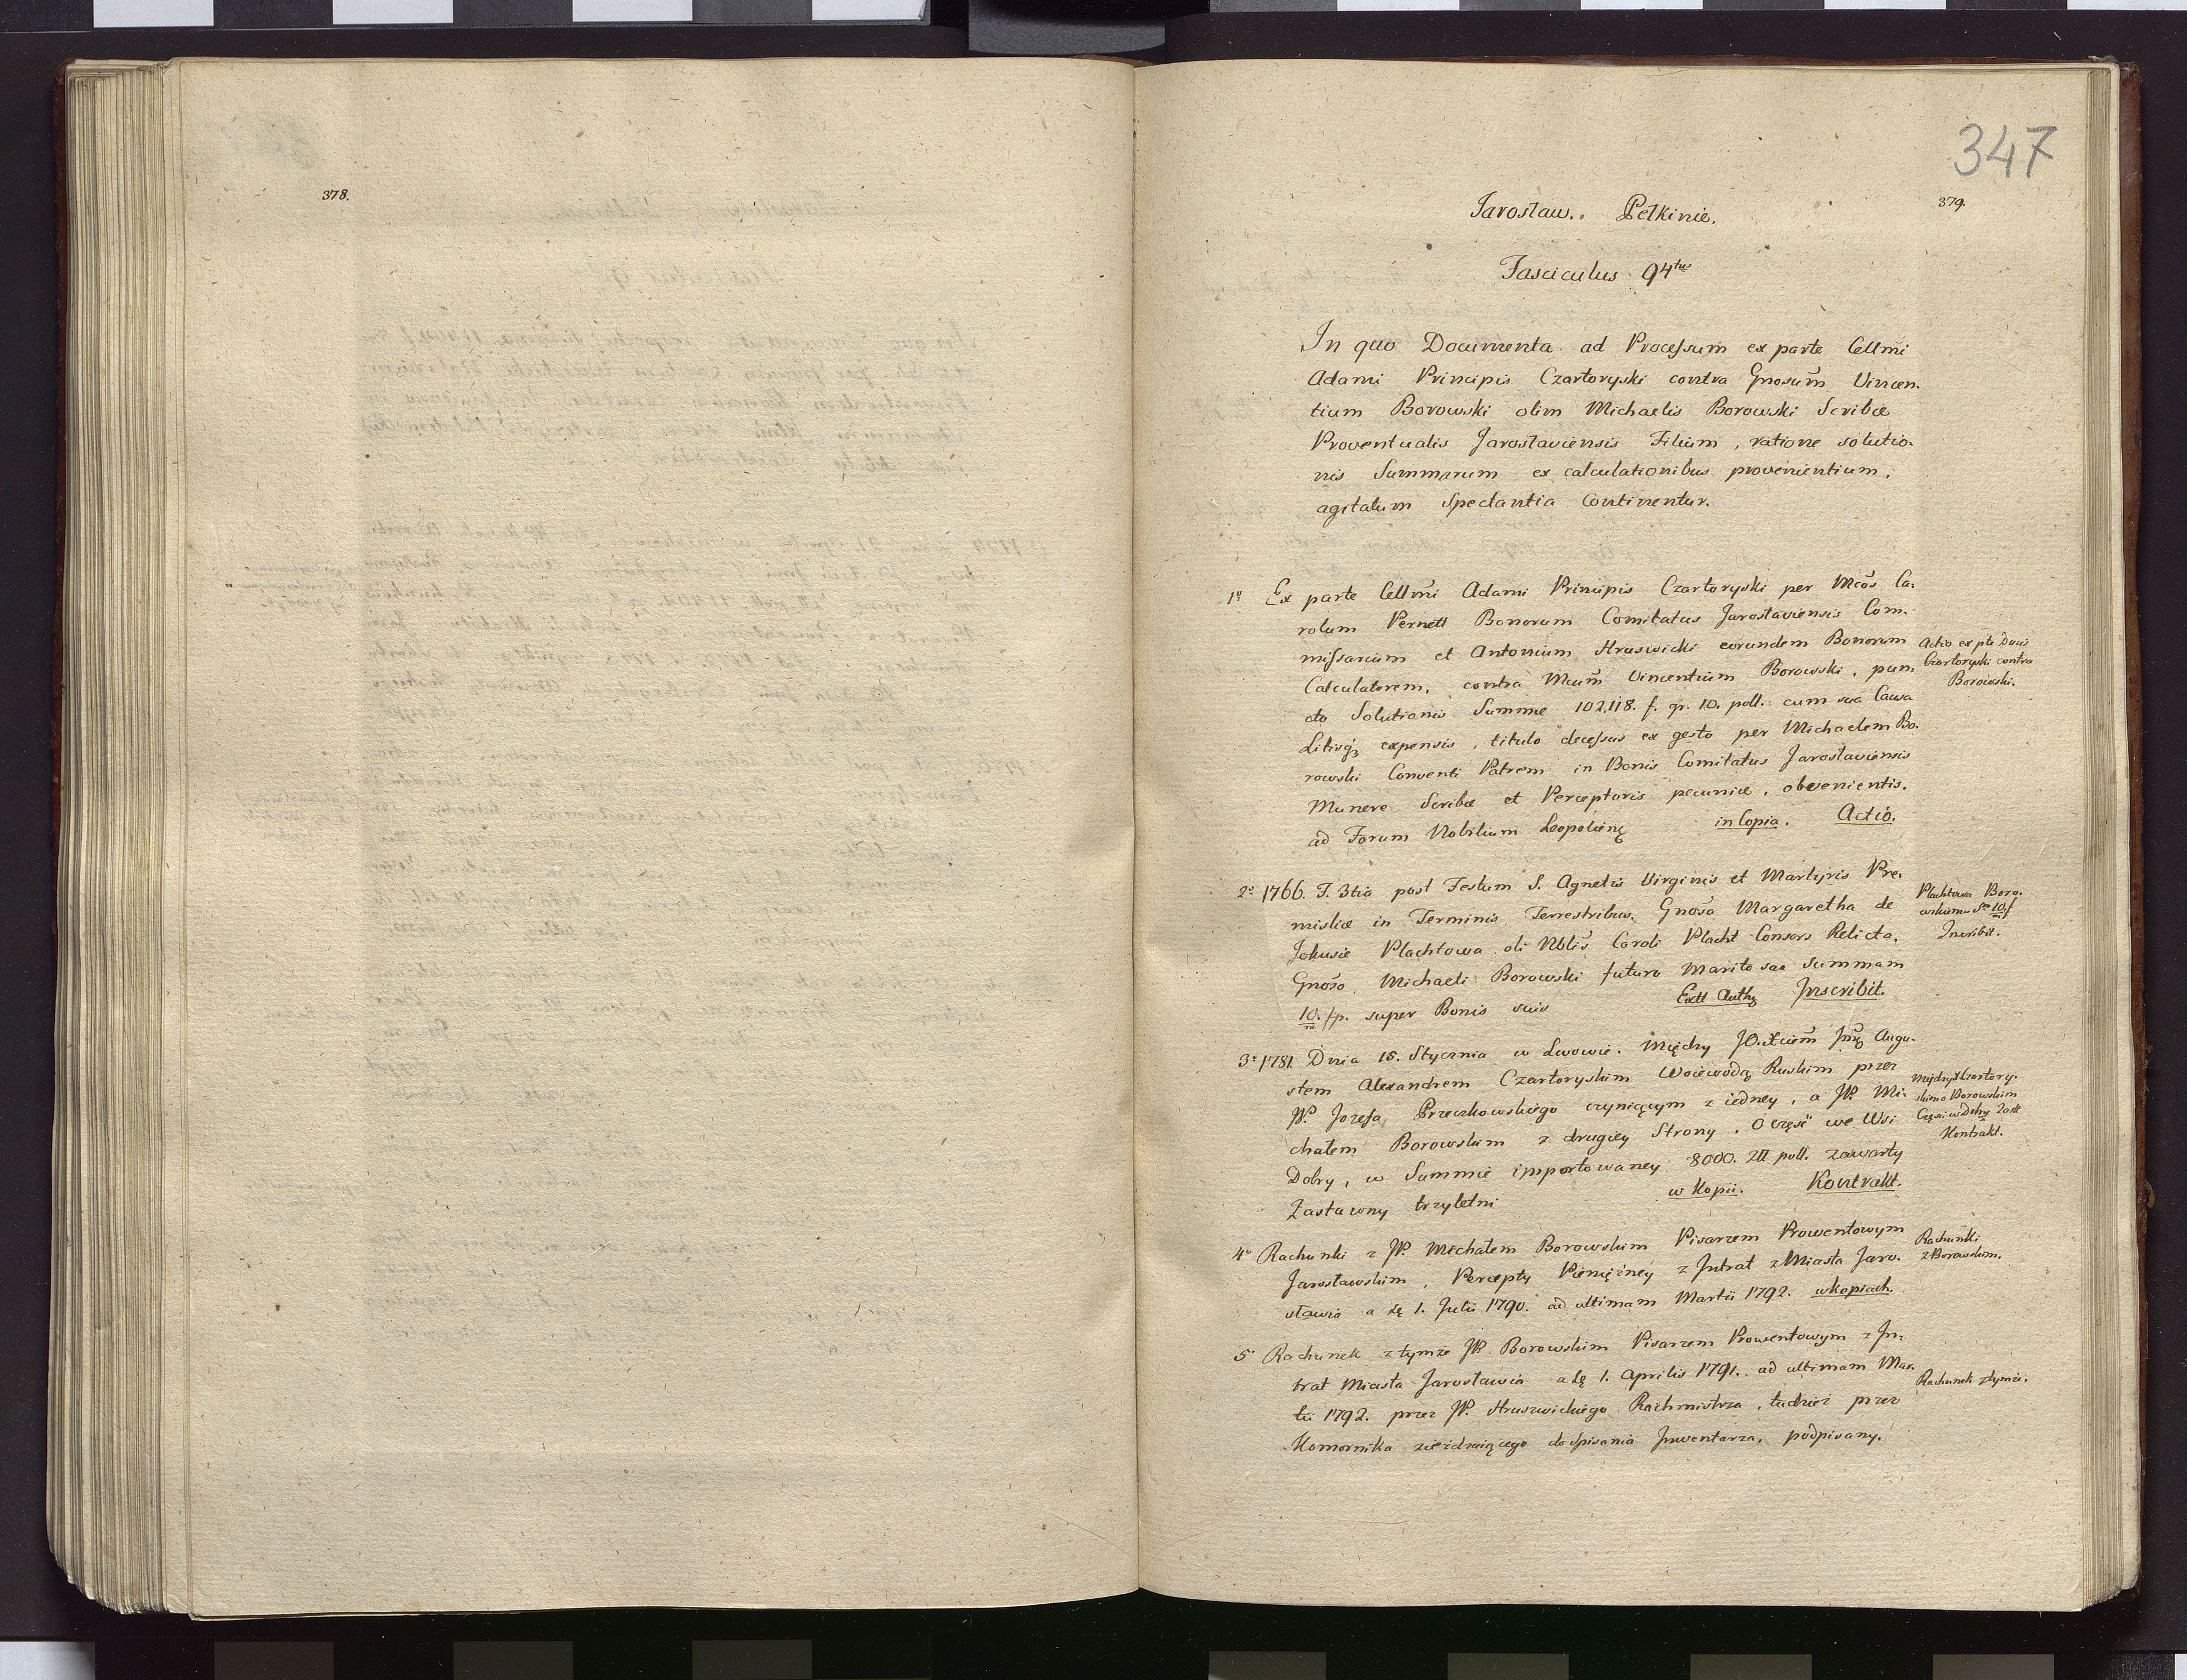 378.
347
379.
Jarosław. Pełkinie.
Fasciculus 94tus
In quo Documenta ad Processum ex parte Cellmi
Adami Principis Czartoryski contra Gnosum Vincen-
tium Borowski olim Michaelis Borowski Scribæ
Proventualis Jaroslaviensis Filium, ratione solutio-
nis Summarum ex calculationibus provenientium,
agitatum Spectantia Continentur.
1º Ex parte Cellmi Adami Principis Czartoryski per Mcos Ca-
rolum Pernett Bonorum Comitatus Jaroslaviensis Com-
missarium et Antonium Hruswicki eorundem Bonorum
Calculatorem, contra Mcum Vincentium Borowski, pun-
cto Solutionis Summæ 102,118. f. gr. 10. poll. cum sua Causa
Litisqз expensis, titulo decessus ex gesto per Michaelem Bo-
rowski Conventi Patrem in Bonis Comitatus Jaroslaviensis
Munere Scribæ et Perceptoris pecuniæ, obvenientis.
ad Forum Nobilium Leopolieng in Copia. Actio.
Actio ex pte Ducis
Czartoryski contra
Borowski.
2º 1766. F. 3tia post Festum S. Agnetis Virginis et Martyris Pre-
misliæ in Terminis Terrestribus. Gnosa Margaretha de
Jokusie Plachtowa oli Nblis Caroli Placht Consors Relicta,
Gnoso Michaeli Borowski futuro Marito suo Summam
10/m fp. super Bonis suis Extt Authз Inscribit.
Plachtowa Boro-
wskiemu Sæ 10/m f
Inscribit.
3º 1781. Dnia 15. Stycznia w Lwowie. Między JO. Xciem Jmę Augu-
stem Alexandrem Czartoryskim Woiewodą Ruskim przez
W. Jozefa Przeczkowskiego czyniącym z iedney, a JP. Mi-
chałem Borowskim z drugiey Strony. O część we Wsi
Dobry, w Summie importowaney 8000. Zll poll. zawarty
Zastawny trzyletni w Kopii. Kontrakt.
Między Czartory-
skim a Borowskim
Części w Dobry Zast
Kontrakt.
4º Rachunki z JP. Michałem Borowskim Pisarzem Prowentowym
Jarosławskim, Percepty Pieniężney z Jntrat z Miasta Jaro-
sławia a dę 1. Julii 1790. ad ultimam Martii 1792. w kopiach.
Rachunki
z Borowskim.
5º Rachunek z tymże JP. Borowskim Pisarzem Prowentowym z Jn-
trat Miasta Jarosławia a dę 1. Aprilis 1791. ad ultimam Mar-
tii 1792. przez JP. Hruswickiego Rachmistrza, tudzież przez
Komornika zieżdżaiącego do Spisania Jnwentarza, podpisany.
Rachunek z tymże.